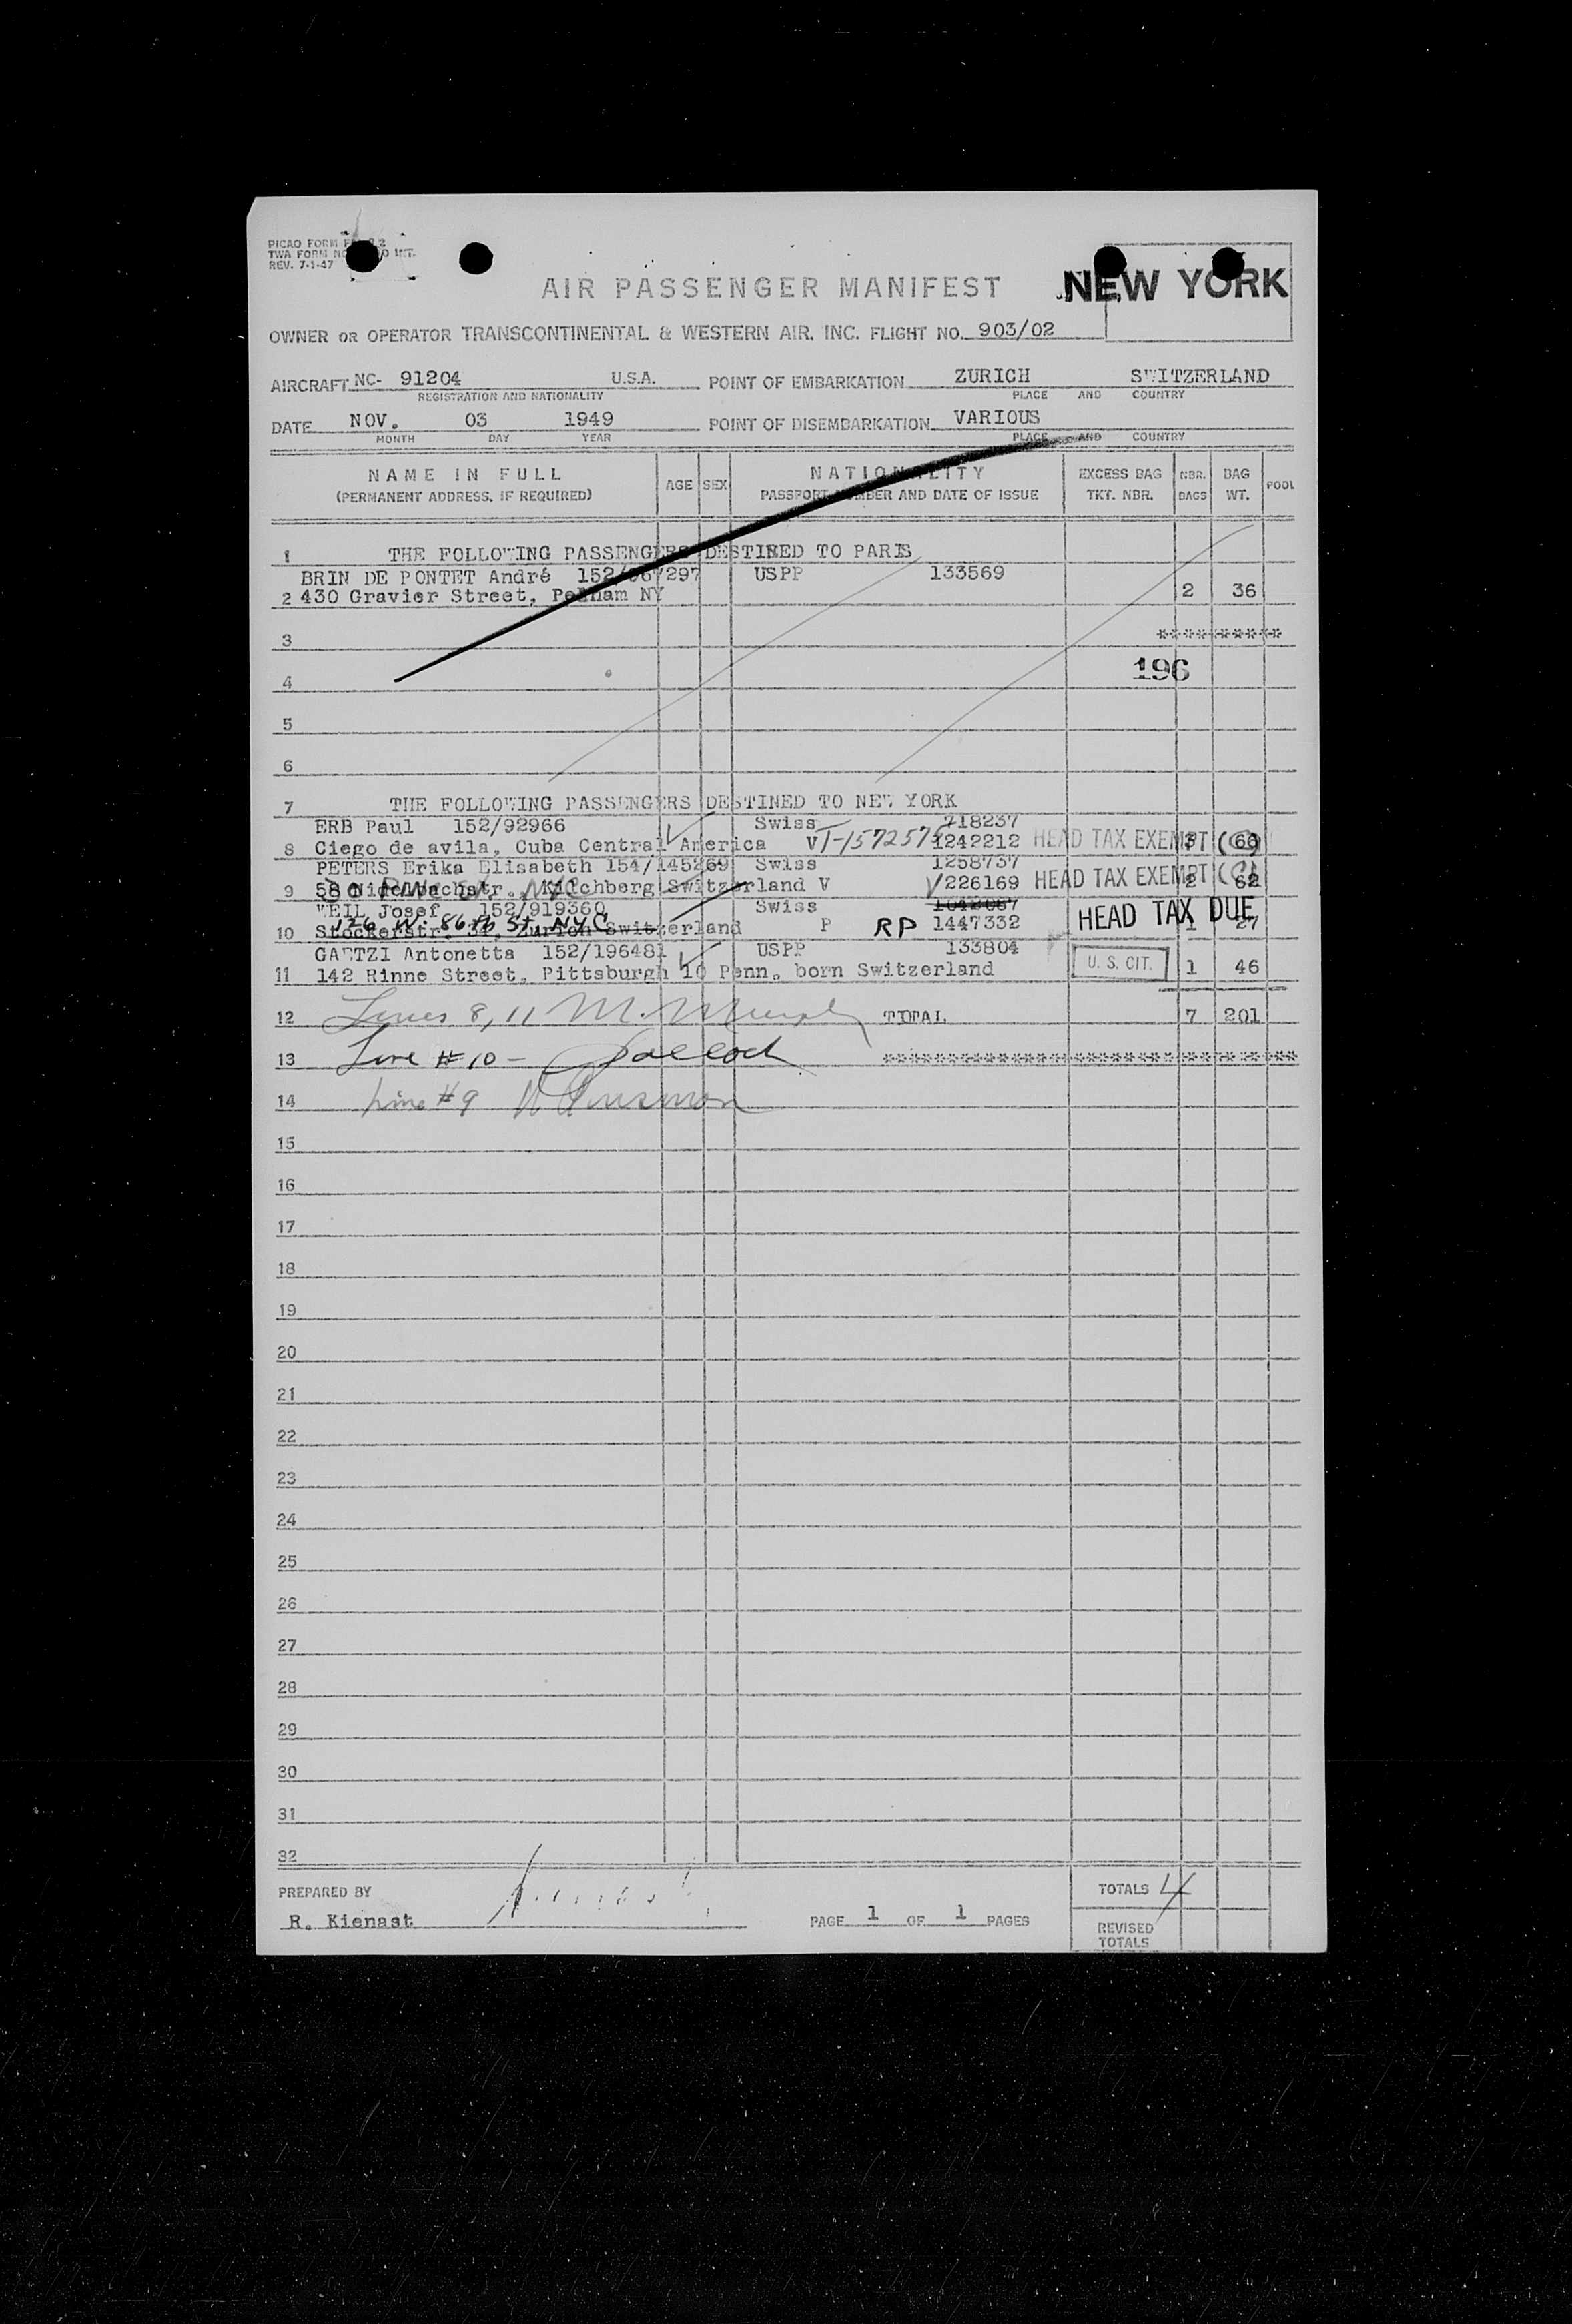 PICAO FORM
TWA FORM NO
REV. 7-1-47
AIR PASSENGER MANIFEST
NEW YORK
OWNER OR OPERATOR TRANSCONTINENTAL & WESTERN AIR, INC. FLIGHT NO. 903/02
AIRCRAFT NC- 91204 U.S.A. POINT OF EMBARKATION ZURICH SWITZERLAND
REGISTRATION AND NATIONALITY PLACE AND COUNTRY
DATE NOV. 03 1949 POINT OF DISEMBARKATION VARIOUS
MONTH DAY YEAR PLACE AND COUNTRY
NAME IN FULL AGE SEX NATIONALITY EXCESS BAG NBR. BAG POOL
(PERMANENT ADDRESS, IF REQUIRED) PASSPORT NUMBER AND DATE OF ISSUE TKT. NBR. BAGS WT.
1 THE FOLLOWING PASSENGERS DESTINED TO PARIS
BRIN DE PONTET André 152/ 297 USPP 133569
2 430 Gravier Street, Pelham NY 2 36
3 **********
4 196
5
6
7 THE FOLLOWING PASSENGERS DESTINED TO NEW YORK
ERB Paul 152/92966 Swiss 718237
8 Ciego de avila, Cuba Central America V 1242212 HEAD TAX EXEMPT 3 66
PETERS Erika Elisabeth 154/145269 Swiss 1258737
9 58 Kilchberg Switzerland V V226169 HEAD TAX EXEMPT 2 62
WEIL Josef 152/919360 Swiss
126 W. 86th St. NYC
10 Stockerstr. 34, Zurich Switzerland P RP 1447332 HEAD TAX DUE 1 27
GAETZI Antonetta 152/196481 USPP 133804
11 142 Rinne Street, Pittsburgh 10 Penn. born Switzerland U. S. CIT. 1 46
12 Lines 8, 11 M. Murphy TOTAL 7 201
13 Line # 10 -
14 Line # 9
15
16
17
18
19
20
21
22
23
24
25
26
27
28
29
30
31
32
PREPARED BY TOTALS 4
R. Kienast PAGE 1 OF 1 PAGES REVISED
TOTALS